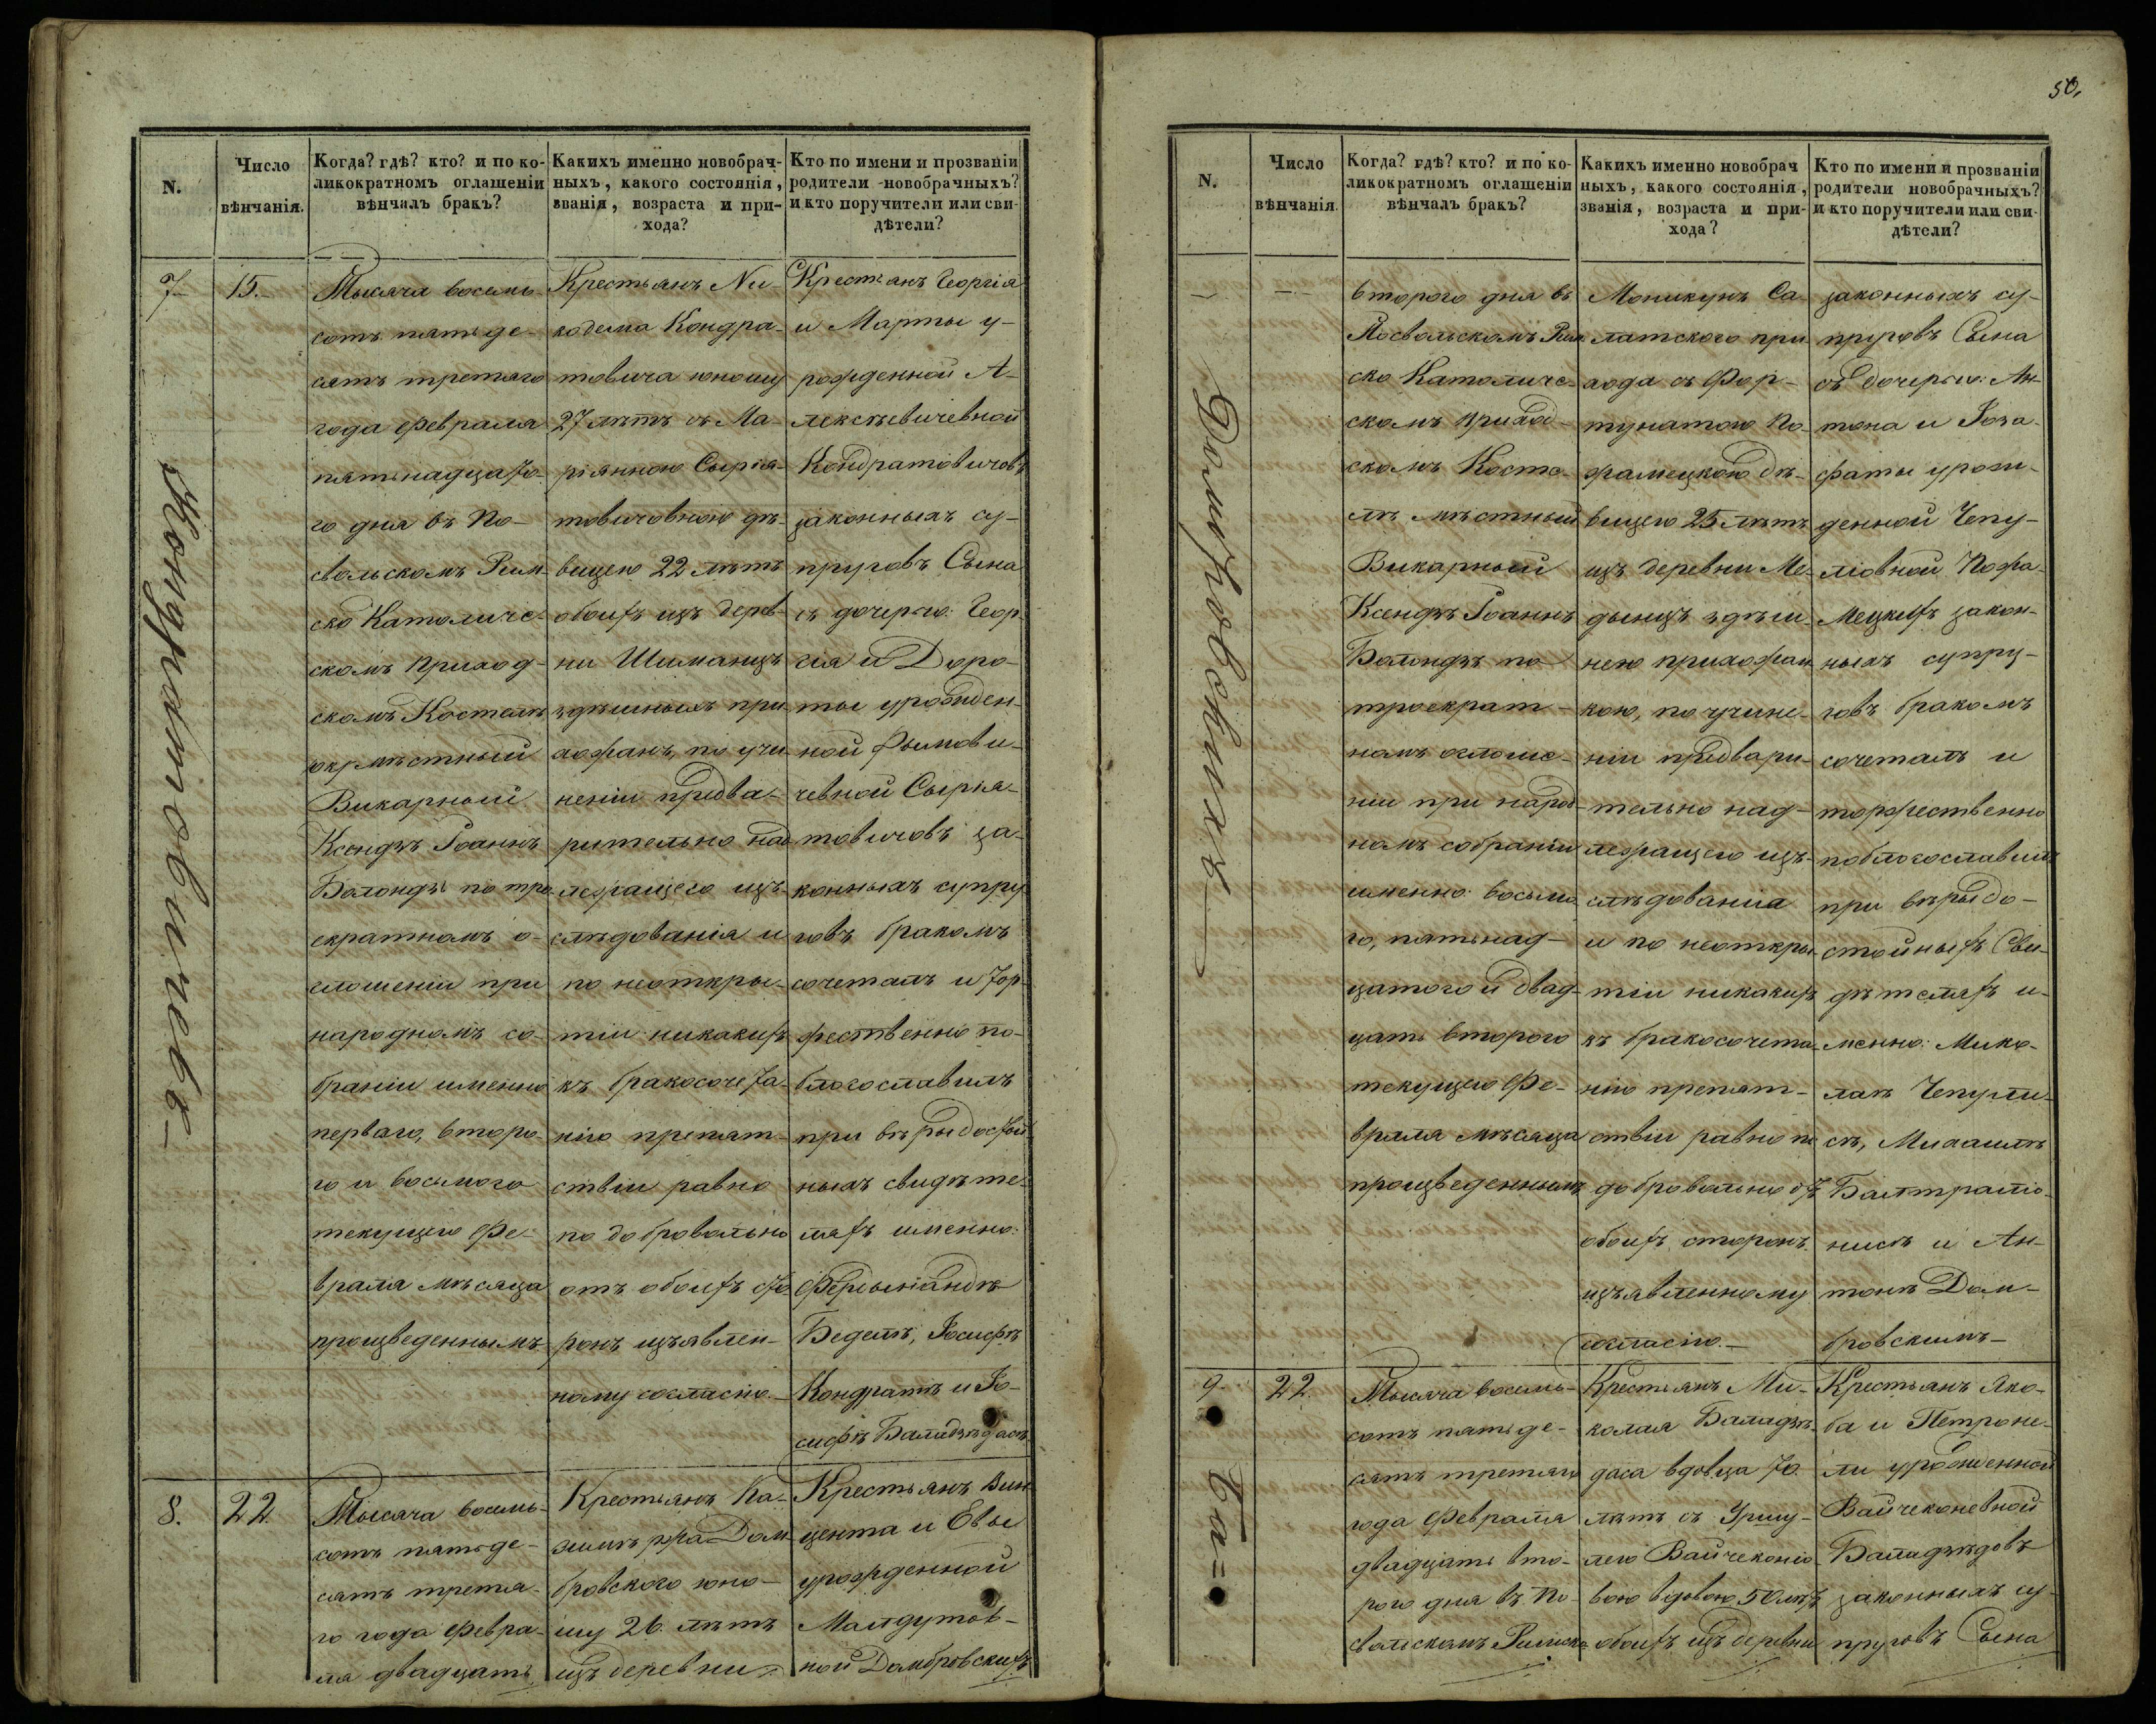 50,
N.
Число
вѣнчанія.
Когда? гдѣ? кто? и по ко-
ликократномъ оглашеніи
вѣнчалъ бракъ?
Какихъ именно новобрач-
ныхъ, какого состоянія,
званія, возраста и при-
хода?
Кто по имени и прозваніи
родители новобрачныхъ?
и кто поручители или сви-
дѣтели?
7
15.
Кондратовичевъ
Тысяча восемь-
сотъ пятьде-
сятъ третяго
года февраля
пятьнадцато-
го дня въ По-
свольскомъ Рим-
ско Католиче-
скомъ приход-
скомъ Костелѣ
мѣстный
Викарный
Ксендзъ Іоаннъ
Болондзь по тро
екратномъ о-
глошеніи при
народномъ со-
браніи именно
перваго, второ-
го и восьмого
текущего Фе-
враля мѣсяца
произведеннымъ
Крестьянъ Ни-
кодема Кондра-
товича юношу
27 лѣтъ съ Ма-
ріянною Сыриа-
товичовною дѣ-
вицею 22 лѣтъ
обоихъ изъ дерев-
ни Шиманцъ
здѣшныхъ при
хожанъ, по учи
неніи предва-
рительно над
лежащего изъ-
слѣдованія и
по неоткры-
тіи никакихъ
къ бракосочета-
нію препят-
ствіи равно
по добровольно
отъ обоихъ сто
ронъ изъявлен-
ному согласію.
Крестьянъ Георгія
и Марты у-
рожденной А-
лексѣевичевной
Кондратовичовъ
законныхъ су-
пруговъ Сына
съ дочерью: Геор-
гія и Доро-
ты урожден-
ной Фимови-
чевной Сыриа-
товичовъ за-
конныхъ супру
говъ бракомъ
сочеталъ и тор-
жественно по-
благославилъ
при вѣрыдостой
ныхъ свидѣте-
ляхъ именно:
Фердынандѣ
Беделѣ, Іосифѣ
Кондратѣ и Іо-
сифѣ Баладзѣдасѣ
8.
22
Тысяча восемь-
сотъ пятьде-
сятъ третя-
го года февра-
ля двадцать
Крестьянъ Ка-
зимѣржа Дом
бровского юно-
шу 26 лѣтъ
изъ деревни
Крестьянъ Вин
цента и Евы
урожденной
Малдутов-
ной Домбровскихъ
N.
Число
вѣнчанія.
Когда? гдѣ? кто? и по ко-
ликократномъ оглашеніи
вѣнчалъ бракъ?
Какихъ именно новобрач
ныхъ, какого состоянія,
званія, возраста и при-
хода?
Кто по имени и прозваніи
родители новобрачныхъ?
и кто поручители или сви-
дѣтели?
Домбровскихъ
второго дня въ
Посвольскомъ Рим
ско Католиче-
скомъ приход-
скомъ Косте-
лѣ мѣстный
Викарный
Ксендзъ Іоаннъ
Болондзъ по
троекрат-
номъ оглоше-
ніи при народ-
номъ собраніи
именно: восьмо
го, пятьнад-
цатого и двад-
цать второго
текущего Фе-
враля мѣсяца
произведеннымъ
Моникунъ Са-
латского при
хода съ Фор-
тунатою По-
жамецкою дѣ-
вицею 25 лѣтъ
изъ деревни Ме-
дынцъ здѣш-
нею прихожан
кою, по учине-
ніи предвари-
тельно над-
лежащего изъ-
слѣдованіа
и по неоткры-
тіи никакихъ
къ бракосочета-
нію препят-
ствіи равно по
добровольно отъ
обоихъ сторонъ
изъявленному
согласію.
законныхъ су-
пруговъ Сына
съ дочерью: Ан-
тона и Іоза-
фаты урож-
денной Чепу-
ліовной Пожа-
мецкихъ закон-
ныхъ супру-
говъ бракомъ
сочеталъ и
торжественно
поблогославилъ
при вѣрыдо-
стойныхъ Сви-
дѣтеляхъ и-
менно: Мико-
лаѣ Чепули-
сѣ, Михаилѣ
Балтраліо-
нисѣ и Ан-
тонѣ Дом-
бровскимъ
9.
22.
Ба=
Тысяча восемь-
сотъ пятьде-
сятъ третяго
года Февраля
двадцать вто-
рого дня въ По-
свольскомъ Римско
Крестьянъ Ми-
колая Баладзѣ-
даса вдовца 70
лѣтъ съ Уршу-
лею Вайчеконіо
вою вдовою 50 лѣтъ
обоихъ изъ деревни
Крестьянъ Яко-
ба и Петроне-
ли урожденной
Вайчеконевной
Баладзѣдовъ
законныхъ су-
пруговъ Сына